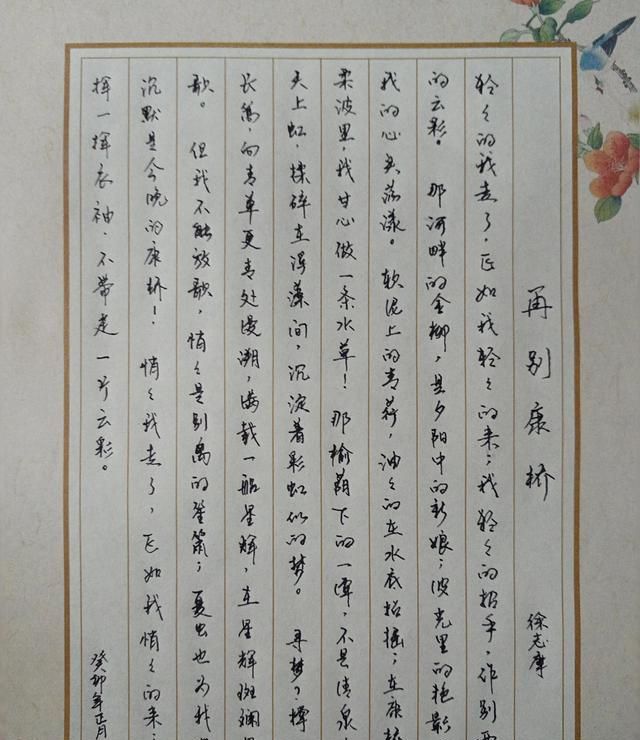 再别康桥 徐志摩
轻々的我走了，正如我轻々的来；我轻々的招手，作别西
的云彩。 那河畔的金柳，是夕阳中的新娘；波光里的艳影
我的心头荡漾。 软泥上的青荇，油々的在水底招摇；在康桥
柔波里，我甘心做一条水草！ 那榆荫下的一潭，不是清泉，
天上虹，揉碎在浮藻间，沉淀着彩虹似的梦。 寻梦？撑
长篙，向青草更青处漫溯，满载一船星辉，在星辉斑斓里
歌。 但我不能放歌，悄々是别离的笙箫；夏虫也为我
沉默是今晚的康桥！ 悄々我走了，正如我悄々的来；
挥一挥衣袖，不带走一片云彩。
癸卯年正月